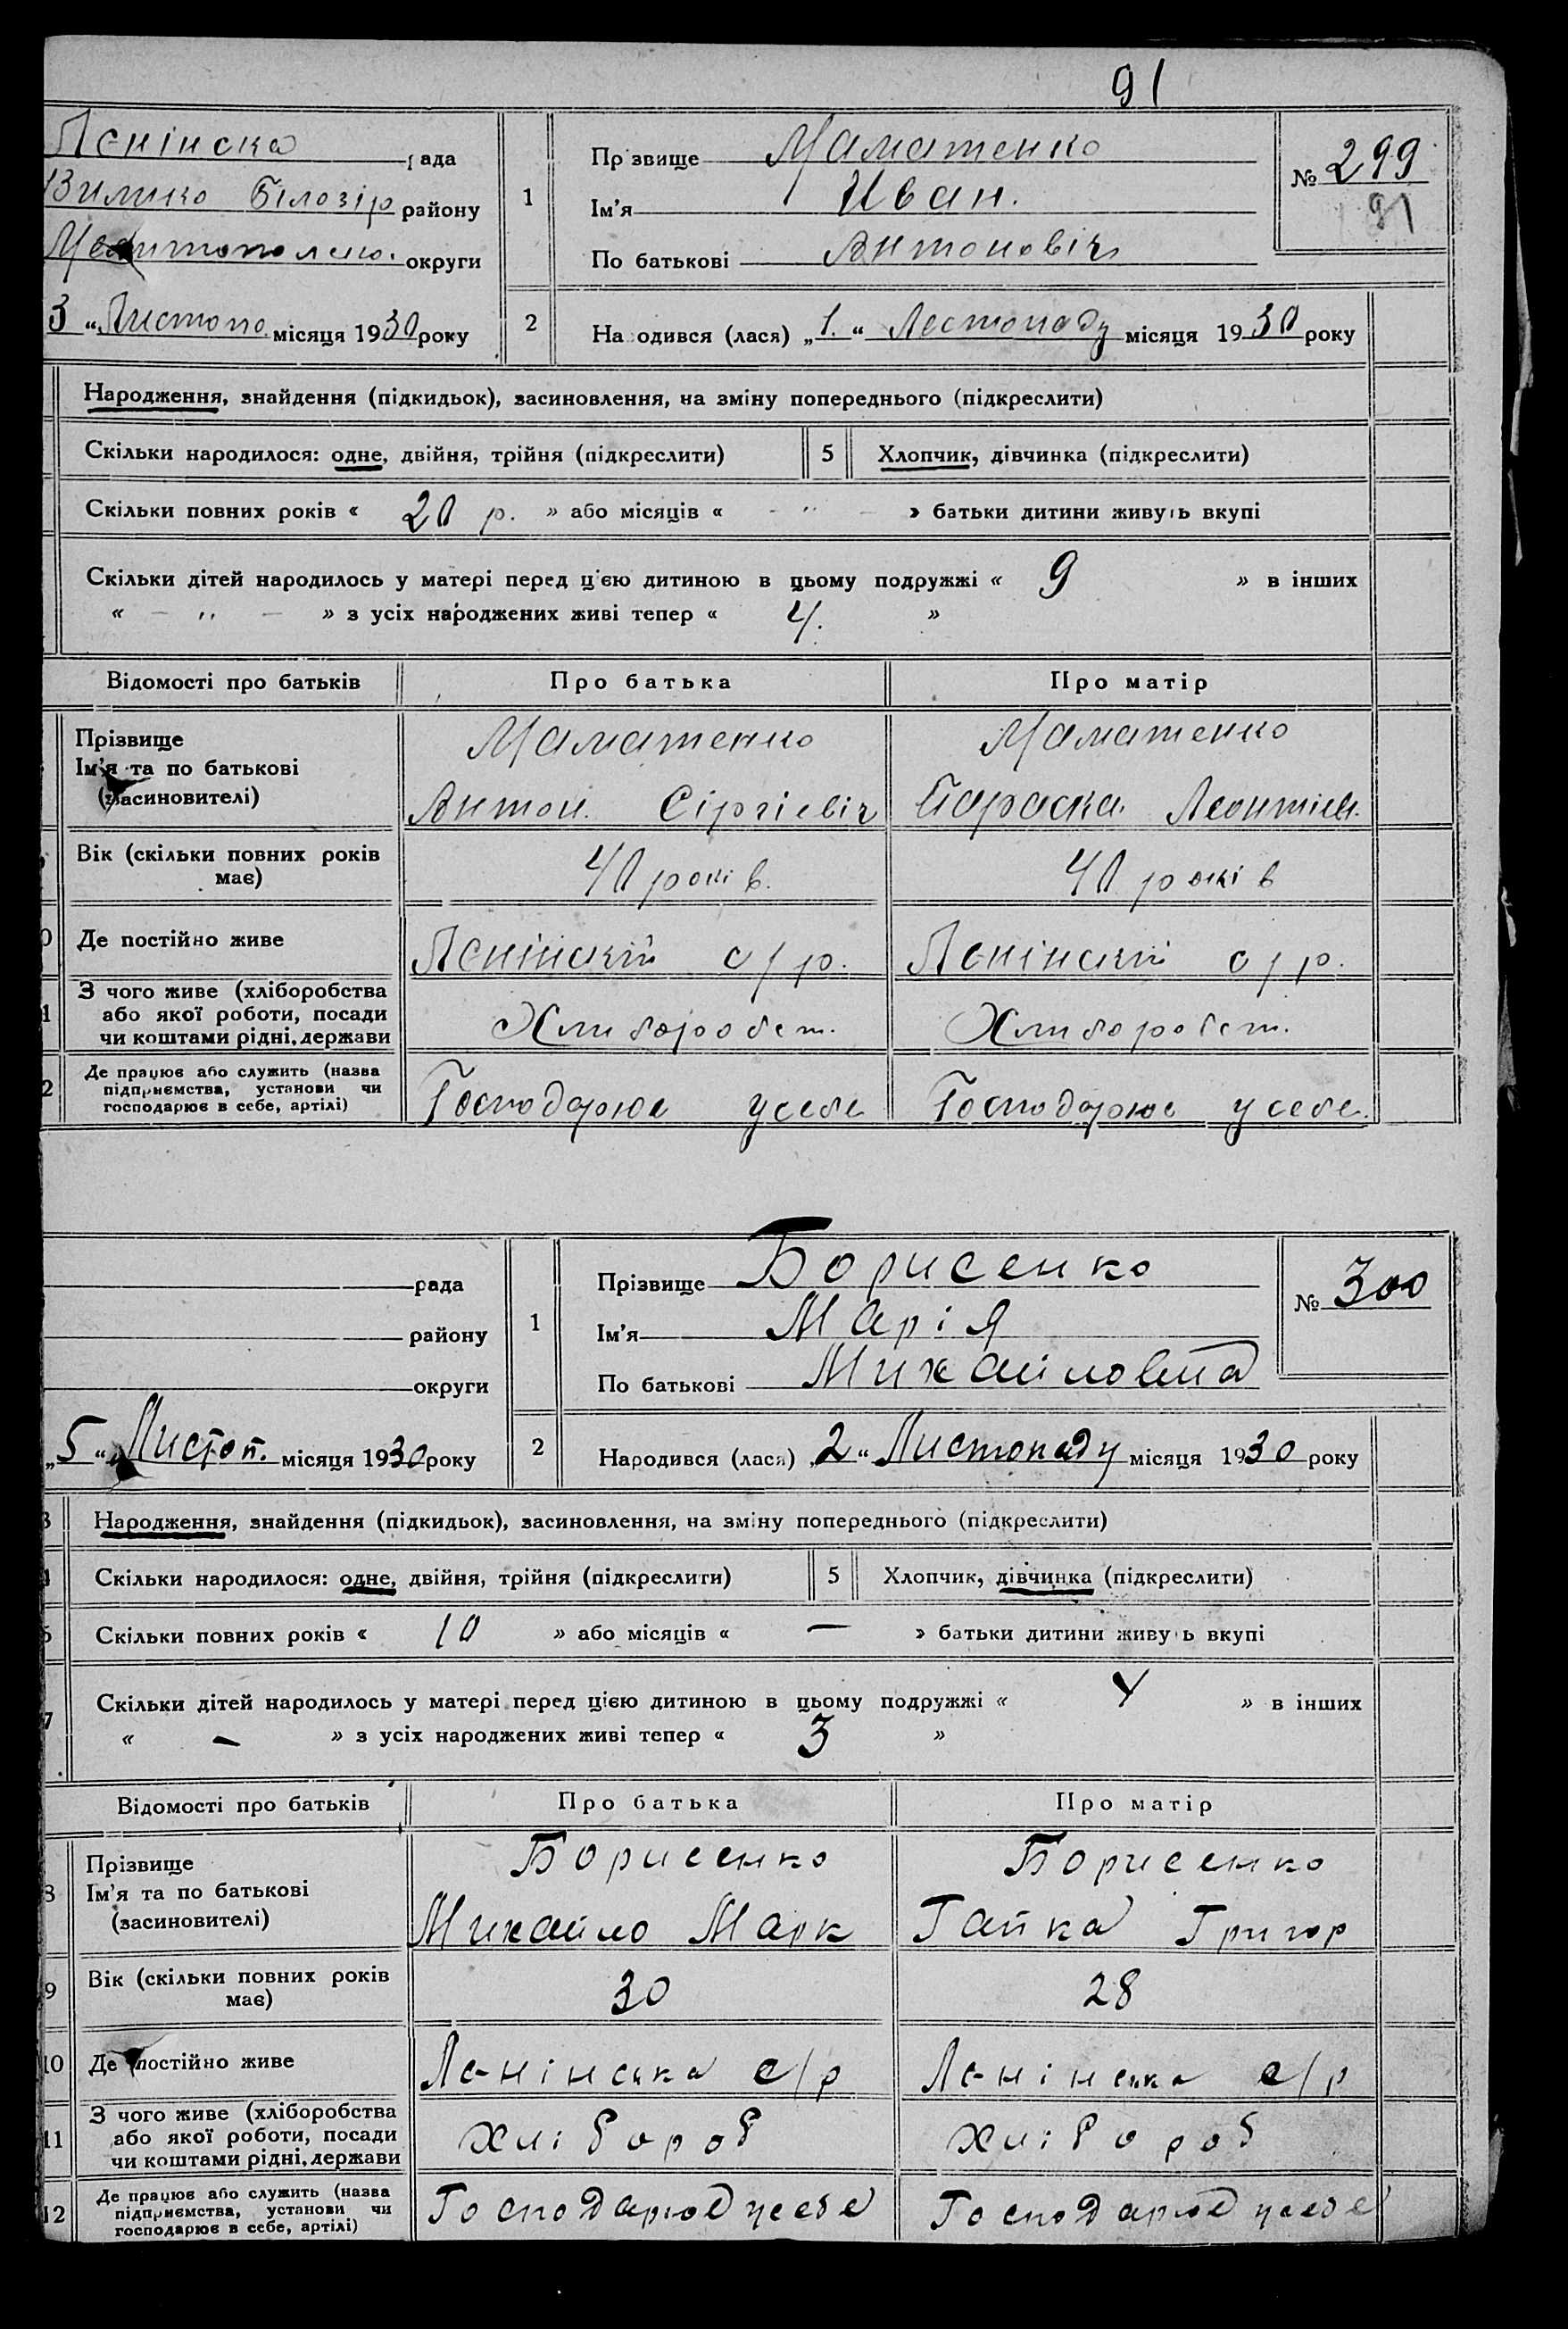 91
Ленінска рада
Вилико Білозір району
Мелитополско. округи
3 „ Листопо місяця 1930 року
1
Прізвище Маматенко
Ім'я Иван.
По батькові Антоновіч
№ 299
91
2
На одився (лася) „1.“ Лестопаду місяця 1930 року
Народження, знайдення (підкидьок), засиновлення, на зміну попереднього (підкреслити)
Скільки народилося: одне, двійня, трійня (підкреслити) 5 Хлопчик, дівчинка (підкреслити)
Скільки повних років « 20 р. » або місяців « - " - » батьки дитини живуть вкупі
Скільки дітей народилось у матері перед цією дитиною в цьому подружжі « 9 » в інших
« - " - » з усіх народжених живі тепер « 4. »
Відомості про батьків Про батька Про матір
Прізвище
Ім'я та по батькові
(засиновителі)
Маматенко
Антон. Сіргіевіч
Маматенко
Параска. Леонтіев.
Вік (скільки повних років
має)
40 років. 40 років
0 Де постійно живе Ленінскій с/р. Ленінскій с/р.
1 З чого живе (хліборобства
або якої роботи, посади
чи коштами рідні, держави
Хлиборобст. Хлиборобст.
2 Де працює або служить (назва
підприємства, установи чи
господарює в себе, артілі)
Господарює усебе Господарює усебе.
рада
району
округи
„5“ Листоп. місяця 1930 року
1
Прізвище Борисенко
Ім'я Марія
По батькові Михайловна
№ 300
2
Народився (лася) „2“ Листопаду місяця 1930 року
3 Народження, знайдення (підкидьок), засиновлення, на зміну попереднього (підкреслити)
4 Скільки народилося: одне, двійня, трійня (підкреслити) 5 Хлопчик, дівчинка (підкреслити)
6 Скільки повних років « 10 » або місяців « — » батьки дитини живуть вкупі
7 Скільки дітей народилось у матері перед цією дитиною в цьому подружжі « 4 » в інших
« - » з усіх народжених живі тепер « 3 »
Відомості про батьків Про батька Про матір
8 Прізвище
Ім'я та по батькові
(засиновителі)
Борисенко
Михайло Марк
Борисенко
Гапка Григор
9 Вік (скільки повних років
має)
30 28
10 Де постійно живе Ленінська с/р Ленінська с/р
11 З чого живе (хліборобства
або якої роботи, посади
чи коштами рідні, держави
Хлібороб Хлібороб
12 Де працює або служить (назва
підприємства, установи чи
господарює в себе, артілі)
Господарює усебе Господарює усебе